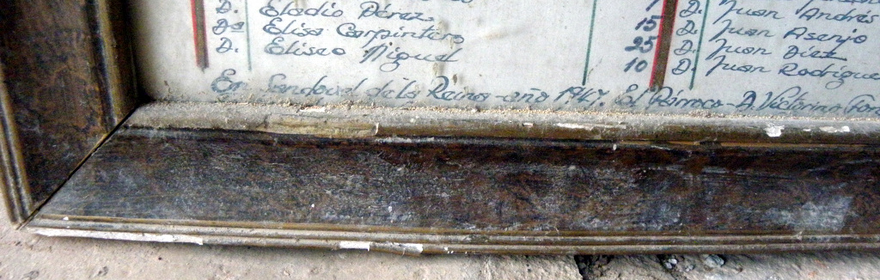 D. Eladio Pérez
Dª Elisa Carpintero
D. Eliseo Miguel
D. Juan Andrés
15 D. Juan Asenjo
25 D. Juan Díez
10 D. Juan Rodrígue
En Sandoval de la Reina-año 1947. El Párroco-D. Victorino